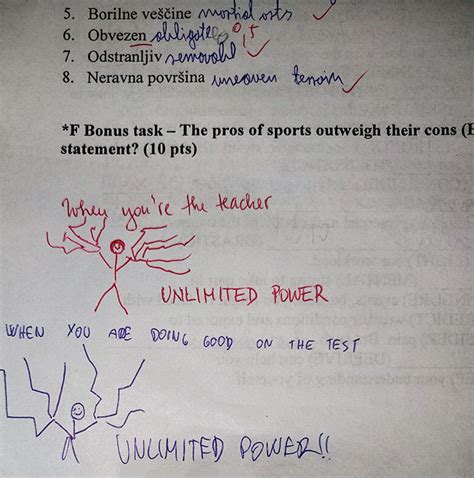 5. Borilne veščine martial arts
6. Obvezen obligate 0,5
7. Odstranljiv removabl
8. Neravna površina uneaven terrain
*F Bonus task – The pros of sports outweigh their cons (
statement? (10 pts)
When you're the teacher
UNLIMITED POWER
WHEN YOU ARE DOING GOOD ON THE TEST
UNLIMITED POWER!!